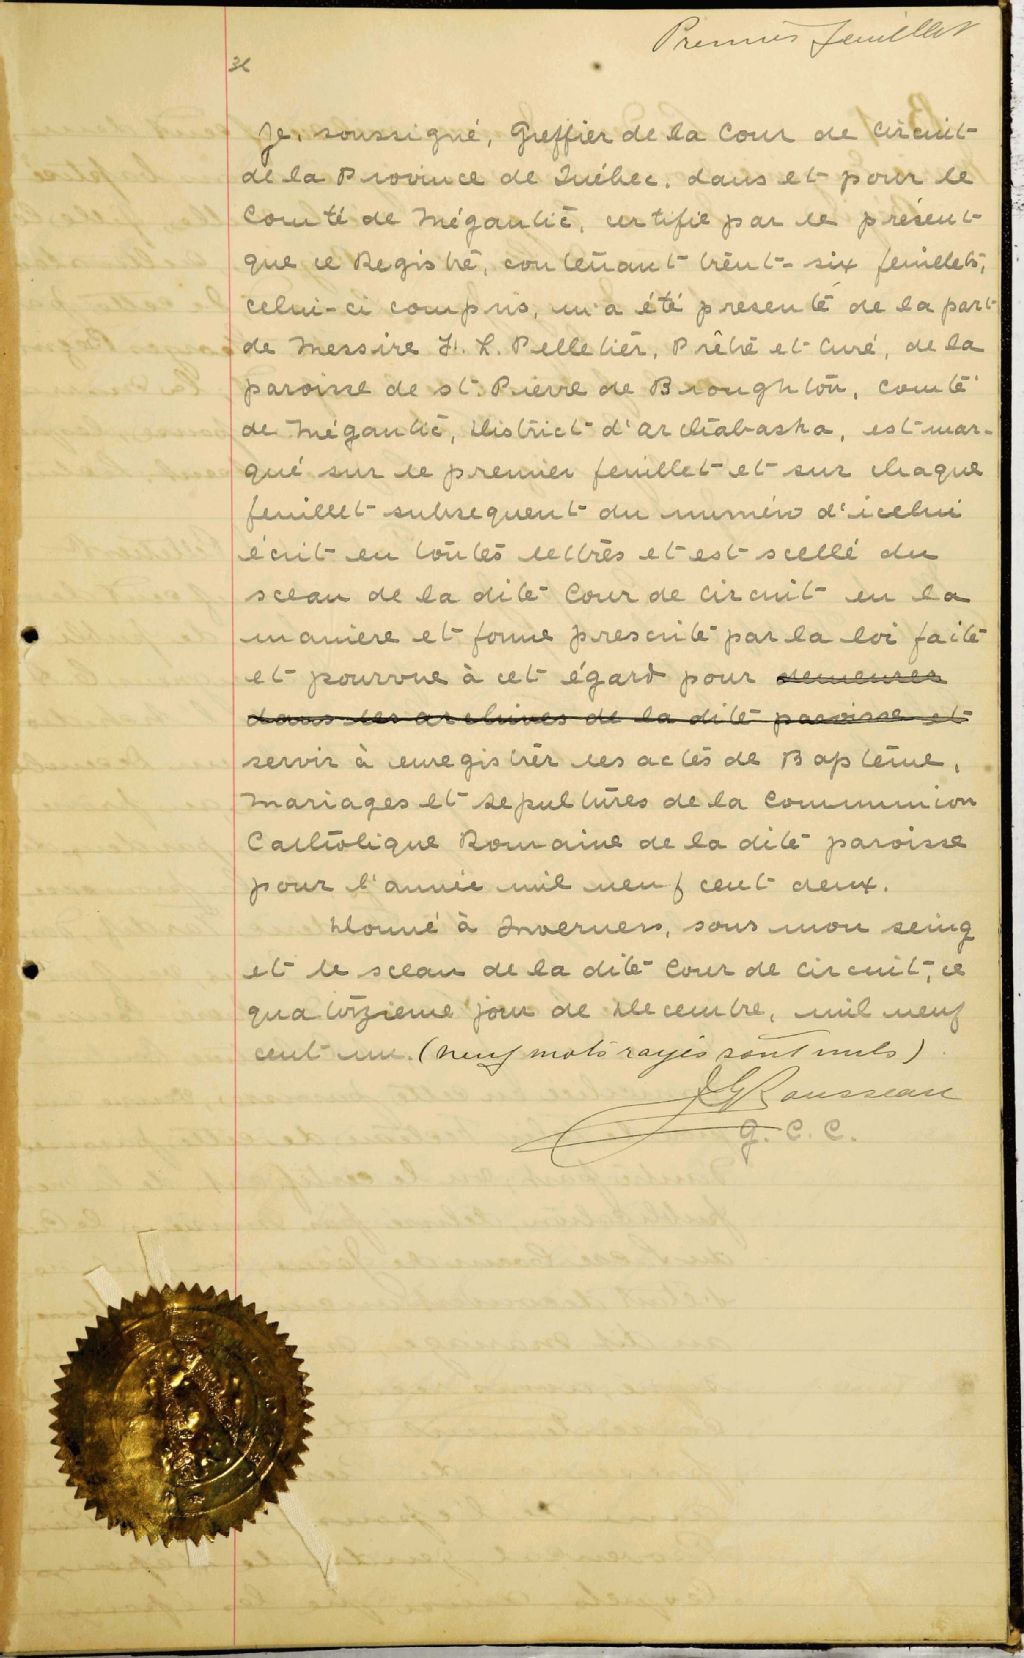 Premier feuillet
36
Je, soussigné, Greffier de la Cour de Circuit
de la Province de Québec, dans et pour le
Comté de Mégantic, certifie par le présent
que ce Registre, contenant trent-six feuillets,
celui-ci compris, m'a été presenté de la part
de Messire H. L. Pelletier, Prêtre et Curé, de la
paroisse de St. Pierre de Broughton, Comté
de Mégantic, District d'Arthabaska, est mar-
qué sur le premier feuillet et sur chaque
feuillet subsequent du numéro d'icelui
écrit en toutes lettres et est scellé du
sceau de la dite Cour de Circuit en la
maniere et forme prescrite par la loi faite
et pourvue à cet égard pour demeurer
dans les archives de la dite paroisse et
servir à enregistrer les actes de Baptême,
Mariages et Sepultures de la Communion
Catholique Romaine de la dite paroisse
pour l'année mil neuf cent deux.
Donné à Inverness, sous mon seing
et le sceau de la dite Cour de Circuit, ce
quatorzieme jour de Decembre, mil neuf
cent un. (neuf mots rayés sont nuls)
J G Rousseau
G. C. C.